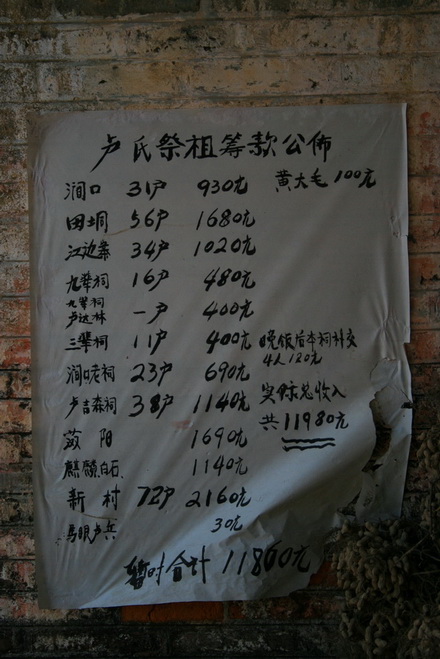 卢氏祭祖筹款公佈
涧口 31户 930元 黄大毛 100元
田垌 56户 1680元
江边寨 34户 1020元
九辈祠 16户 480元
九辈祠卢达林 一户 400元
三辈祠 11户 400元
晚饭后本祠补交
4人120元
涧口老祠 23户 690元
实际总收入
卢吉森祠 38户 1140元
共11980元
阳 1690元
麒麟白石 1140元
新村 72户 2160元
马眼卢兵 30元
暂时合计 11860元